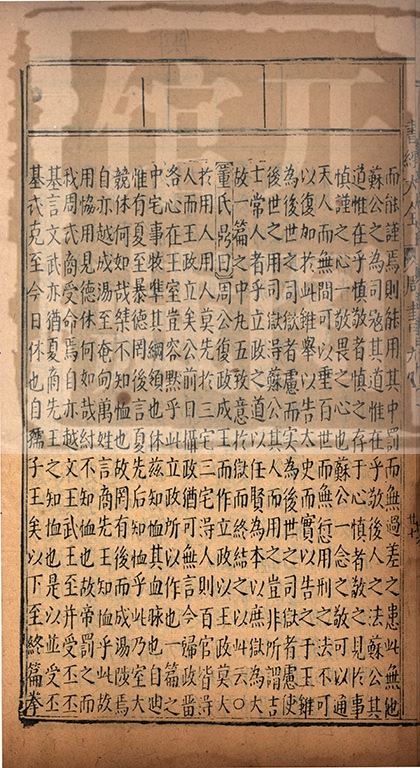 而能謹焉則能用其中而無過差之患此無他
蘇公之為司寇其道惟在乎敬後人之法蘇公其
道惟在乎慎敬者慎之存于心慎者敬之見於事
慎謹之心一敬畏之心也蘇公一念之敬可以通
天人而無間可以垂百世而無愆用刑之法不可
以復加於此維舉以告太史而實以告之于王雖
為後世之司獄者慮而實為後世之司獄者憲使
後世之用司獄得蘇公其人而用之豈非所謂吉
士常人者乎立政之道以任賢為本以庶獄為大
故一篇之中九五致意於獄而終結之以此云○
董氏鼎曰周公復政成王而作立政以王政莫大
於用人用人莫先於三宅三宅得人則百官皆得
人而王政立矣公前日攝政猶可無言今一歸政
洛心在王室豈容黙乎此立政所以作也一篇之
中宅事牧準其綱領也休茲知恤其血脉也自迪
惟有夏至暴德罔後言夏先后知恤乎此乃室大
競休何如哉桀不知恤也故罔有後而成湯陟焉
自亦越成湯至奄甸萬姓言商先王知恤乎此故
用協用見德休何如哉紂不知恤也故帝罰之而
我周式商受命焉自亦越文王武王至并受丕丕
基言文武亦猶夏商先王之知恤也是以並受丕丕
基式克至今日休也自孺子王矣以下至終篇拳